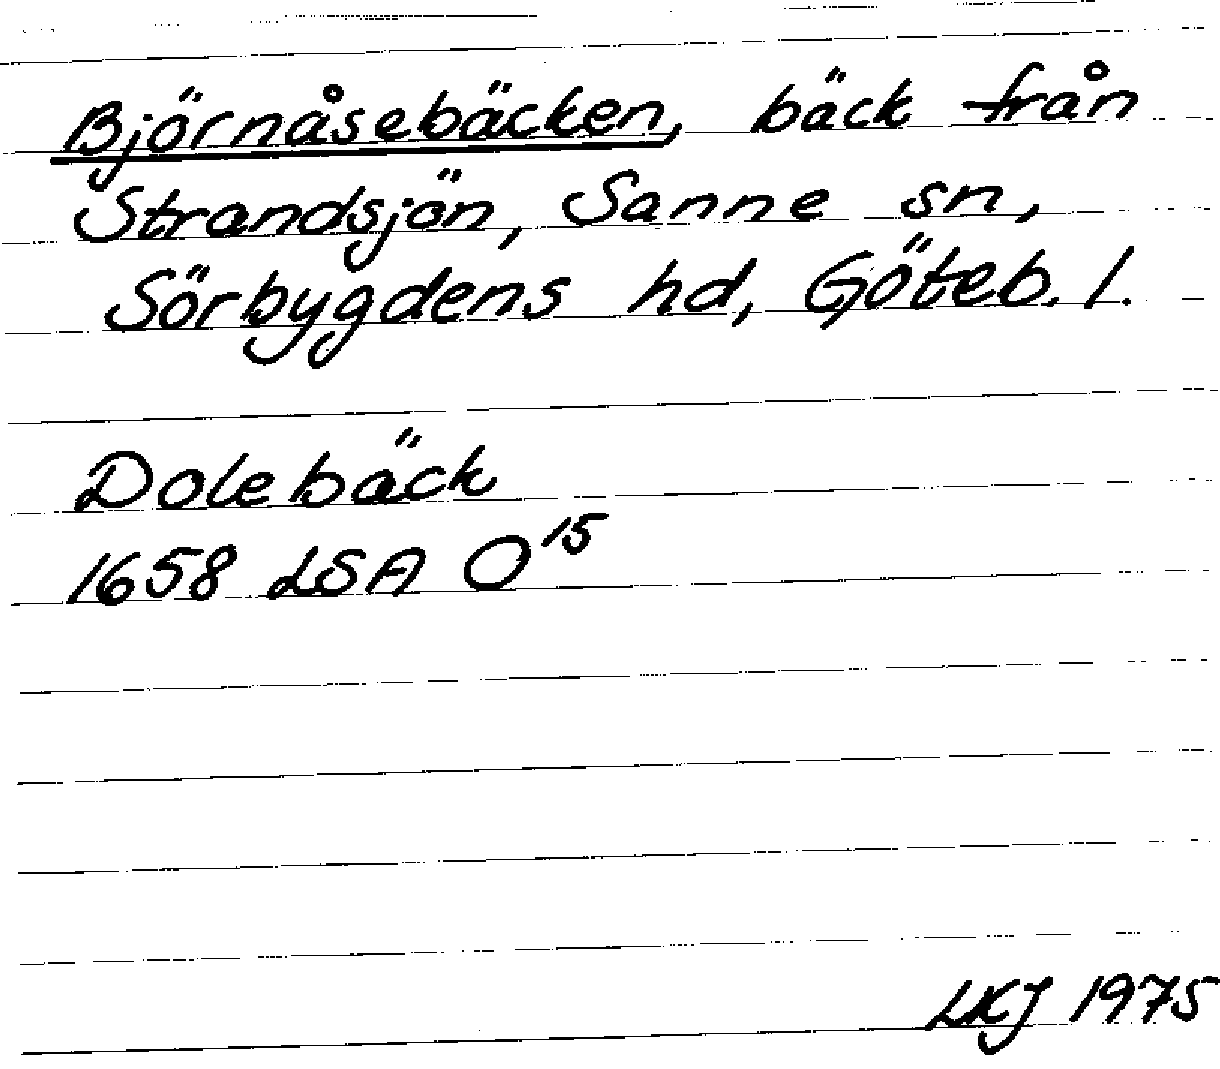 Björnåsebäcken, bäck från
Strandsjön, Sanne sn,
Sörbygdens hd, Göteb. l.
Dolebäck
1658 LSA O15
LKJ 1975